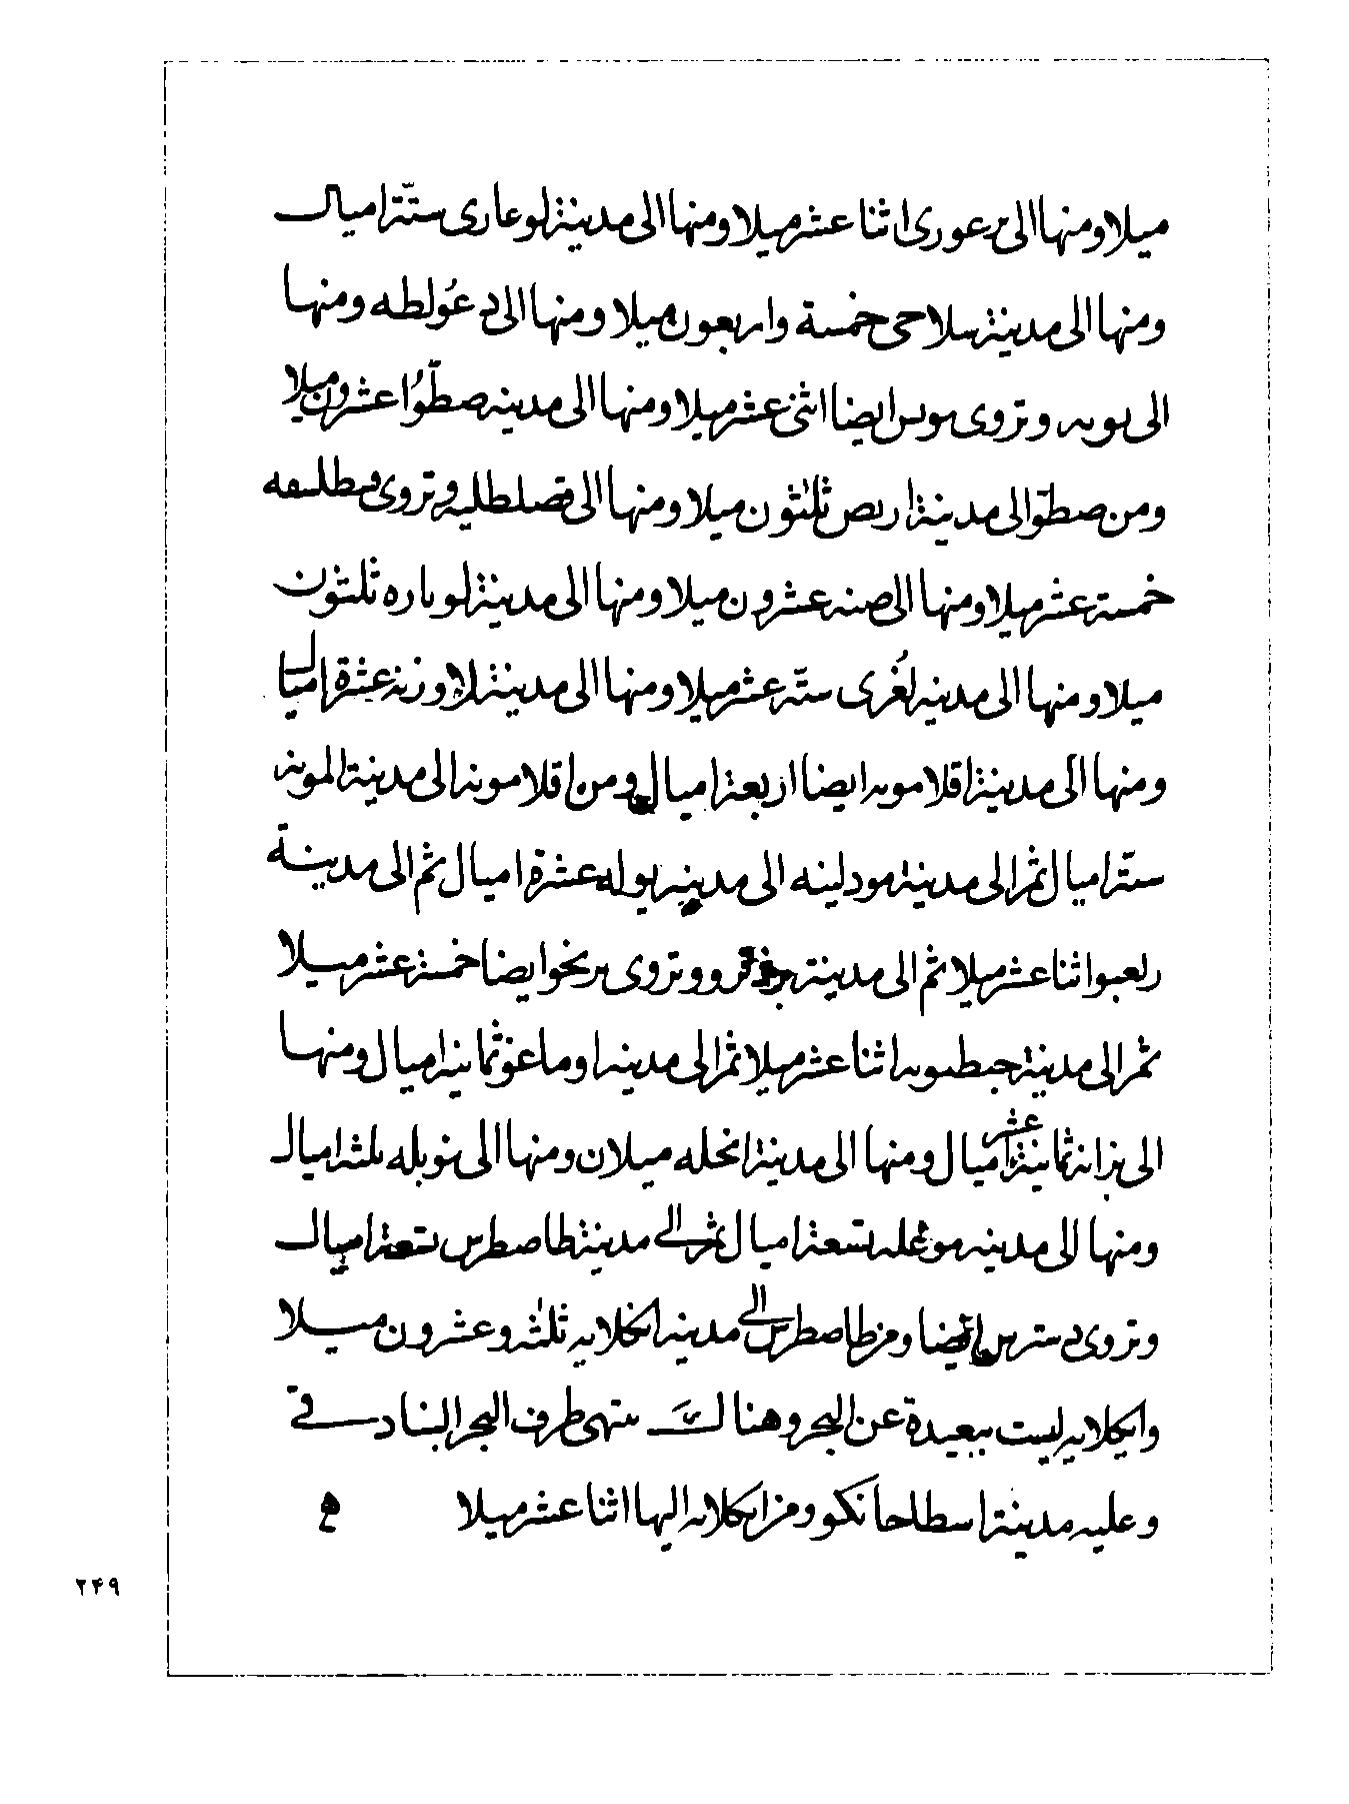 ميلا ومنها الى برعورى اثنا عشر ميلا ومنها الى مدينة لوعارى ستّة اميال
ومنها الى مدينة سلاحى خمسة واربعون ميلا ومنها الى دعُولطه ومنها
الى بوبه وتروى ايضا اثنى عشر ميلا ومنها الى مدينه صطّوُا عشرون ميلا
ومن صطّوا الى مدينة اربص ثلثون ميلا ومنها الى قصلطليه وتروى
خمسة عشر ميلا ومنها الى صنه عشرون ميلا ومنها الى مدينة لوباره ثلثون
ميلا ومنها الى مدينه لغُرى ستّه عشر ميلا ومنها الى مدينة لاوزنه عشرة اميال
ومنها الى مدينة اقلامونه ايضا اربعة اميال ومن اقلامونه الى مدينة المونه
ستّة اميال ثم الى مدينة مودلينه الى مدينه بوله عشرة اميال ثم الى مدينة
ربعبوا اثنا عشر ميلا ثم الى مدينة وتروى برنحوا ايضا خمسة عشر ميلا
ثم الى مدينة جبطبونه اثنا عشر ميلا ثم الى مدينه اوماعو ثمانية اميال ومنها
الى بزانه ثمانية عشر اميال ومنها الى مدينة انحله ميلان ومنها الى نوبله ثلثة اميال
ومنها الى مدينه تسعة اميال ثم الى مدينة طاصطرس تسعة اميال
وتروى دسترس ايضا ومن طاصطرس الى مدينه انكلايه ثلثة وعشرون ميلا
وانكلايه ليست ببعيدة عن البحر وهناك ينتهى طرف البحر البنادقى
وعليه مدينة اسطلحانكو ومن انكلايه اليها اثنا عشر ميلا
۲۴۹